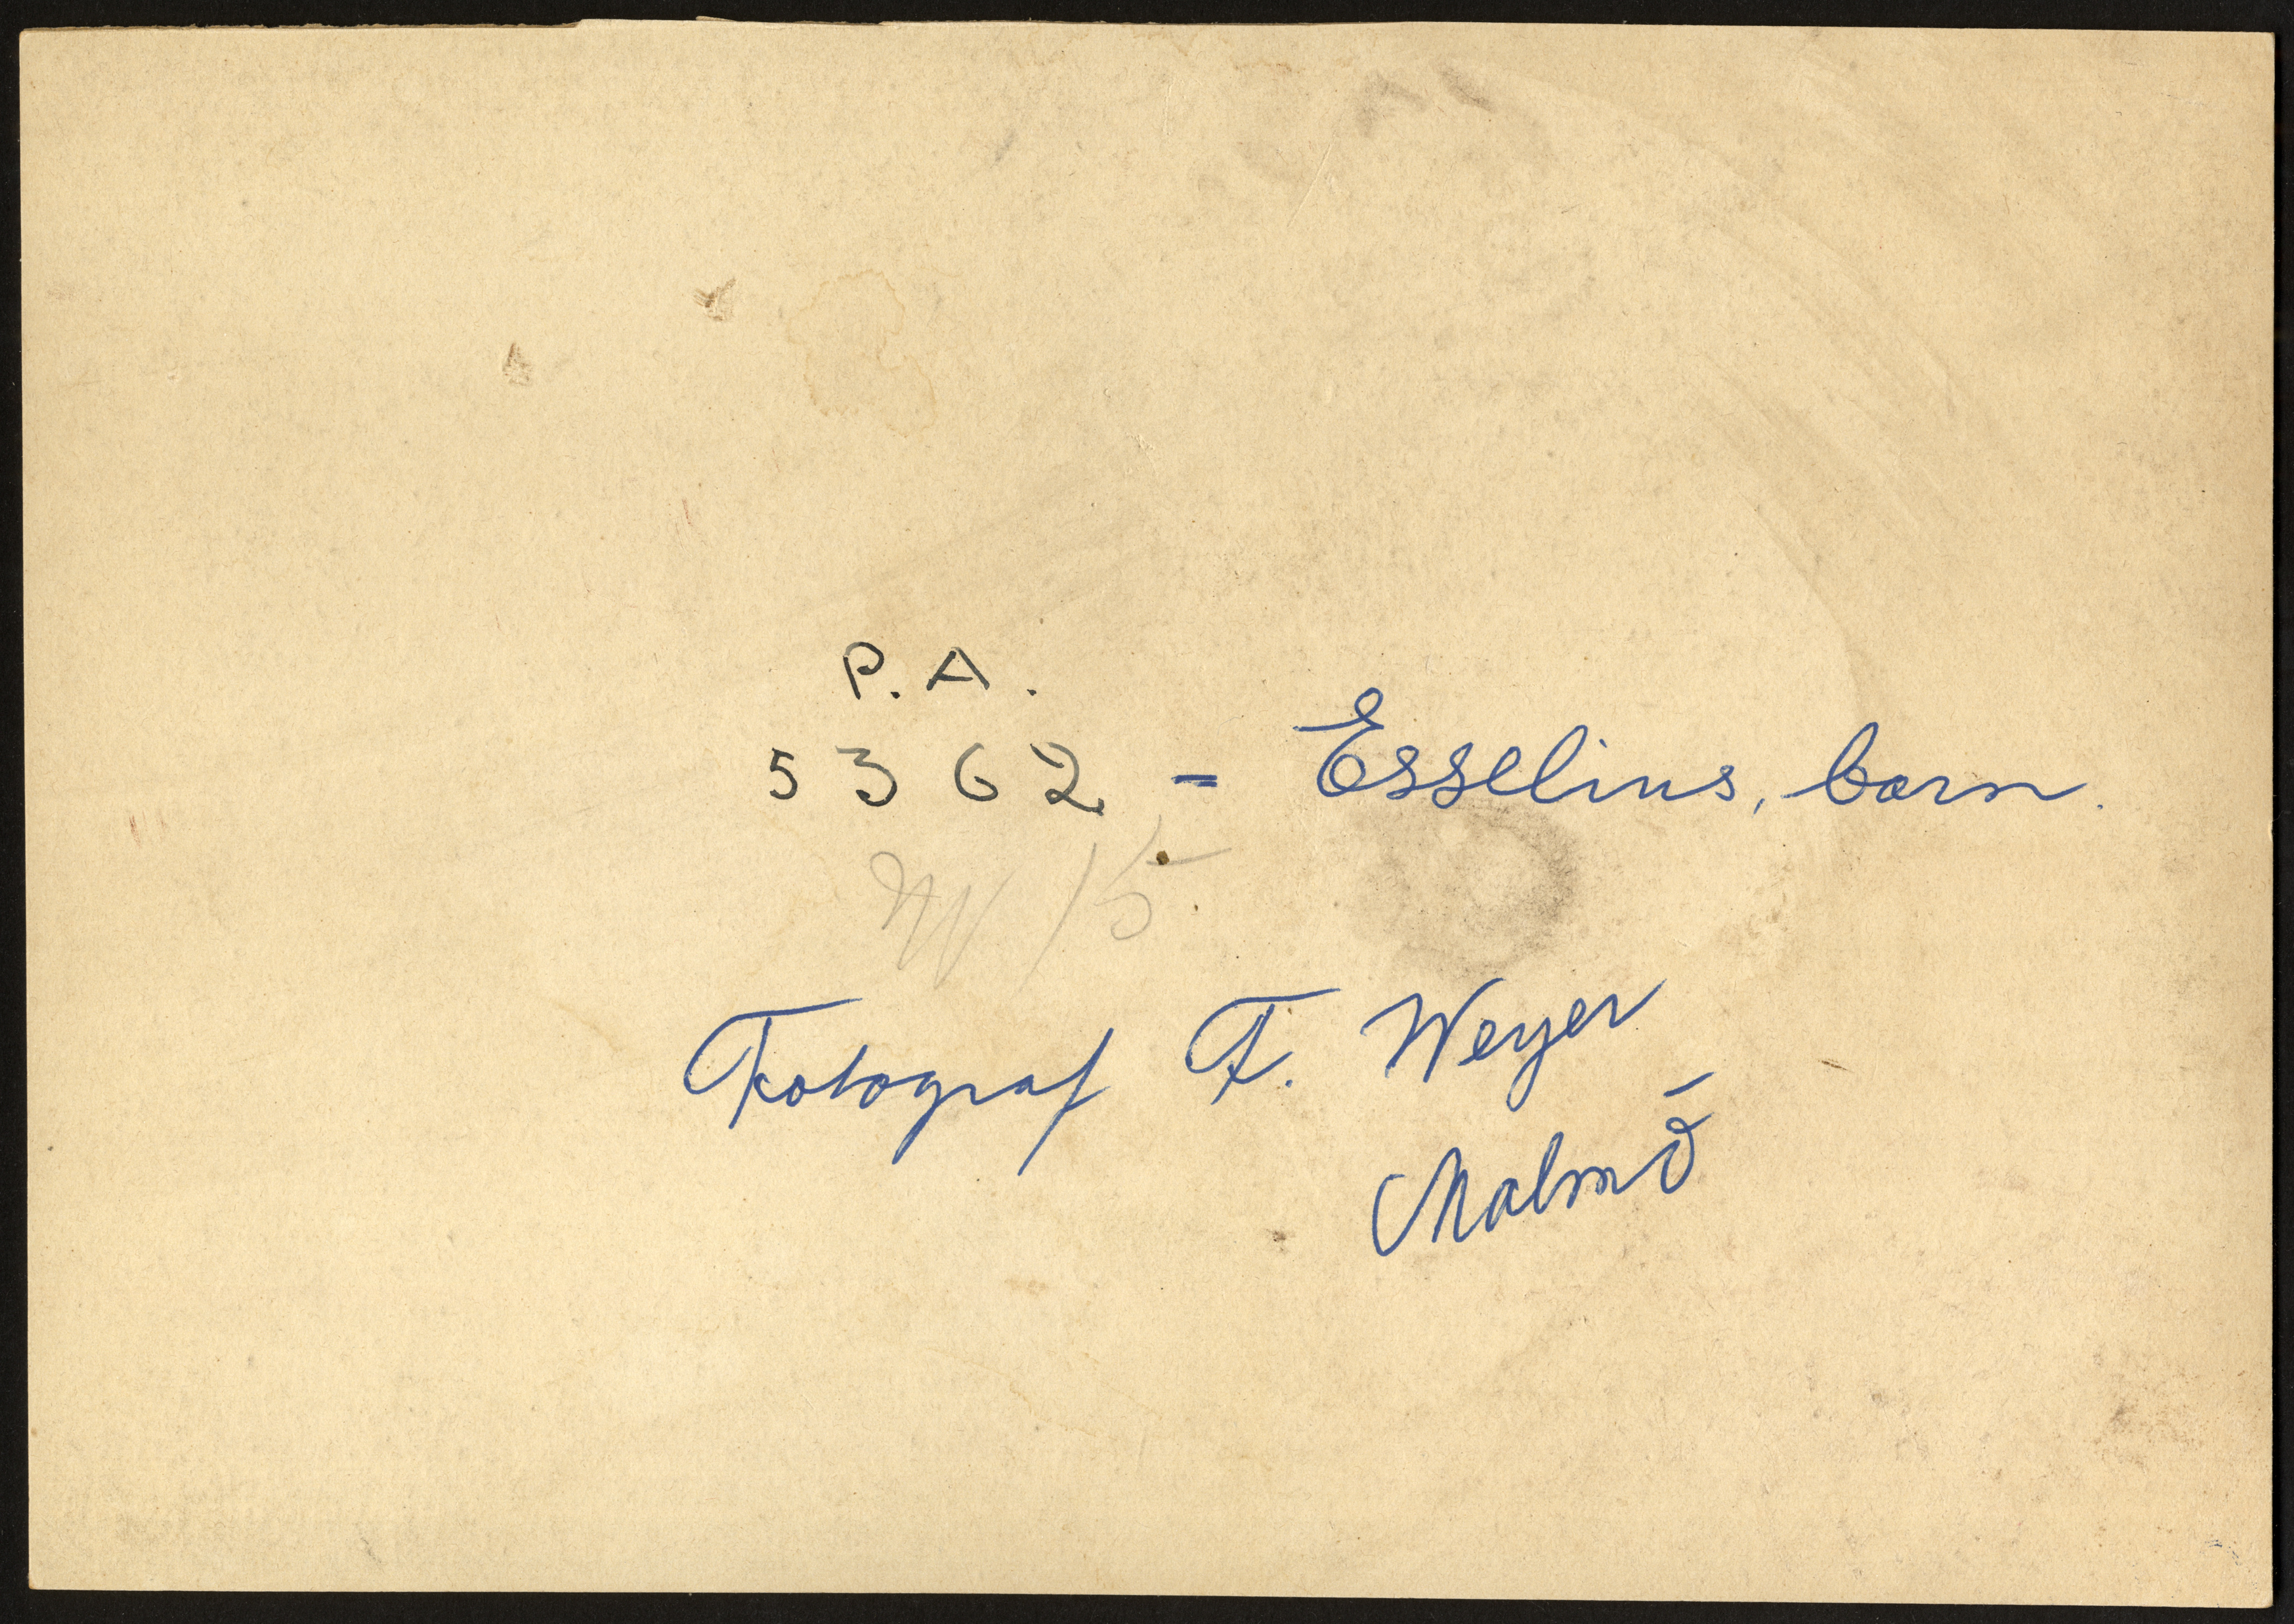 P. A.
5362 - Esselius, barn.
Fotograf F. Weyer
Malmö